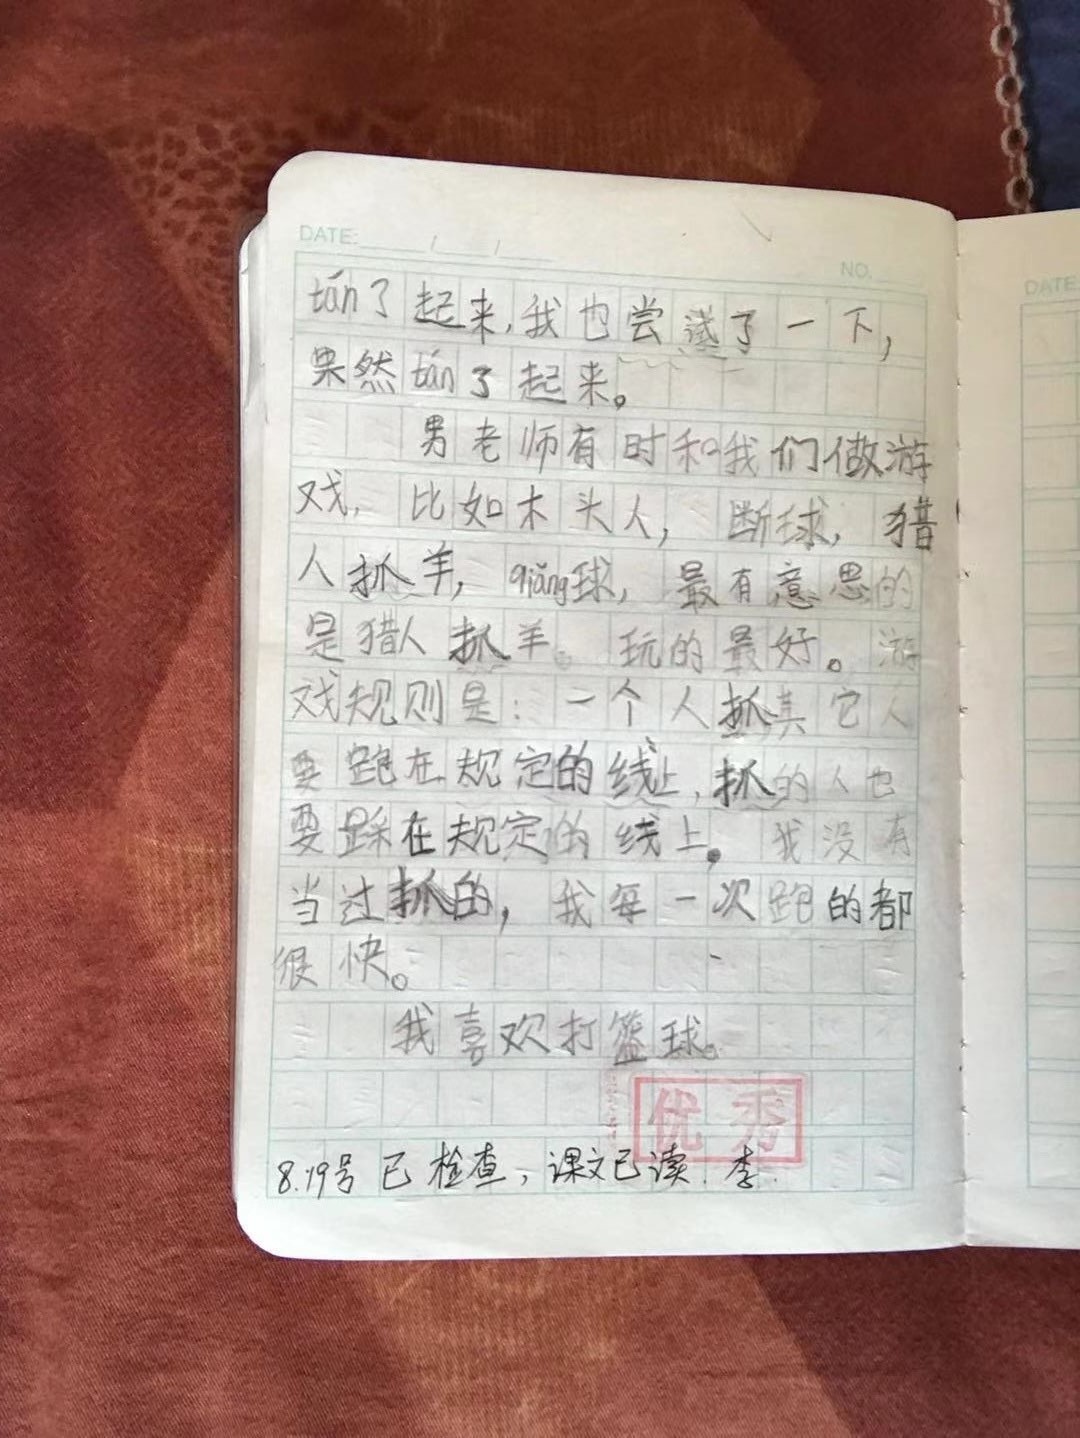 DATE: / /
NO.
tán了起来,我也尝试了一下,
果然tán了起来。
男老师有时和我们做游
戏,比如木头人,断球,猎
人抓羊,qiǎng球,最有意思的
是猎人抓羊。玩的最好。游
戏规则是:一个人抓其它人
要跑在规定的线上,抓的人也
要踩在规定的线上。我没有
当过抓的,我每一次跑的都
很快。
我喜欢打篮球。
优秀
8.19号已检查,课文已读.李.
DATE: